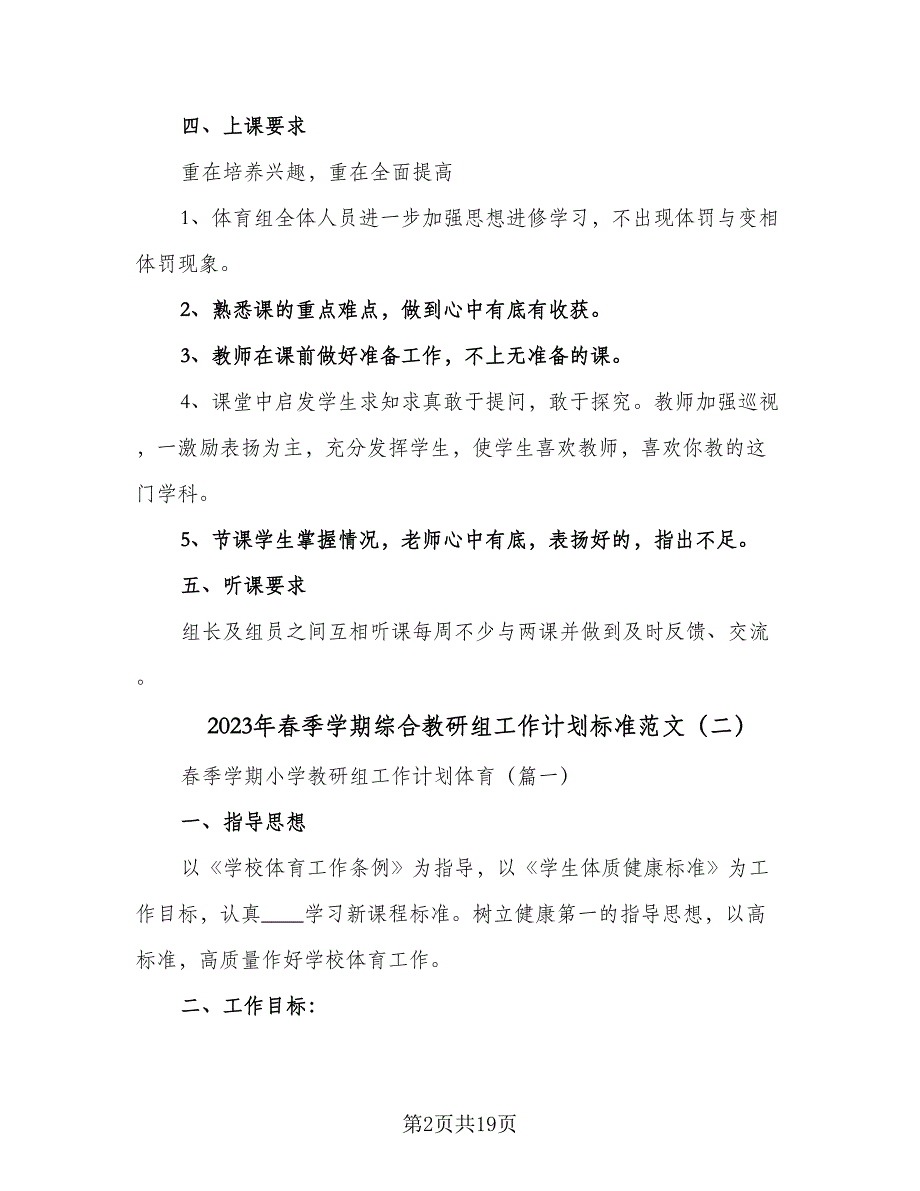 四、上课要求
重在培养兴趣，重在全面提高
1、体育组全体人员进一步加强思想进修学习，不出现体罚与变相
体罚现象。
2、熟悉课的重点难点，做到心中有底有收获。
3、教师在课前做好准备工作，不上无准备的课。
4、课堂中启发学生求知求真敢于提问，敢于探究。教师加强巡视
，一激励表扬为主，充分发挥学生，使学生喜欢教师，喜欢你教的这
门学科。
5、节课学生掌握情况，老师心中有底，表扬好的，指出不足。
五、听课要求
组长及组员之间互相听课每周不少与两课并做到及时反馈、交流
。
2023年春季学期综合教研组工作计划标准范文（二）
春季学期小学教研组工作计划体育（篇一）
一、指导思想
以《学校体育工作条例》为指导，以《学生体质健康标准》为工
作目标，认真____学习新课程标准。树立健康第一的指导思想，以高
标准，高质量作好学校体育工作。
二、工作目标：
第2页共19页